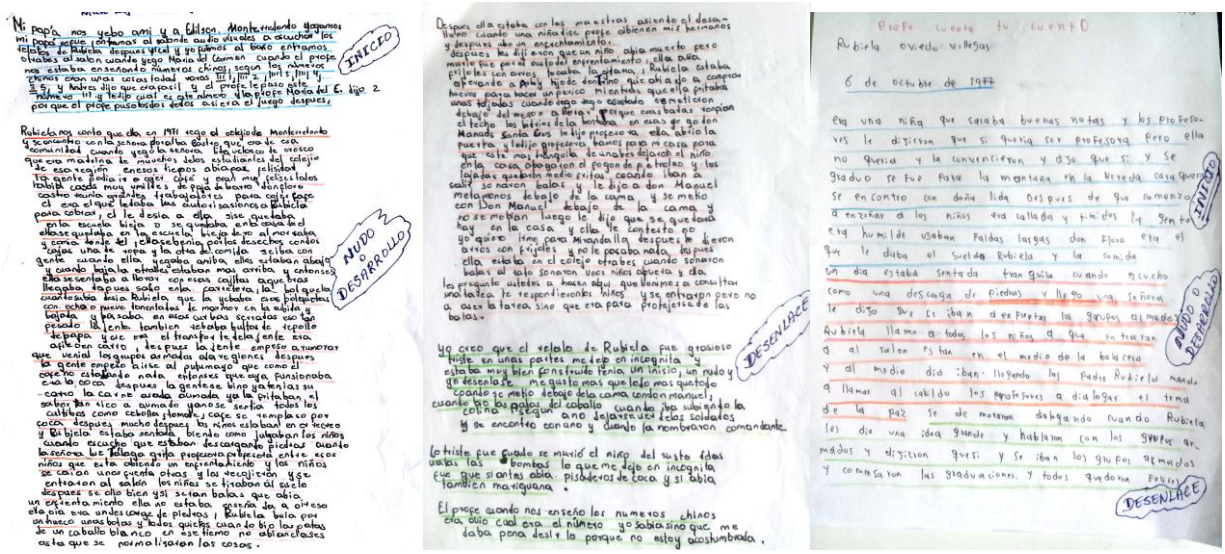 Mi papá nos yebo ami y a Edilson. Monterredondo yogamos
mi papá se fue, entramos al salon de audio visuales a escuchar los
relatos de Rubiela despues y cel y yo fuimos al baño entramos
otrabes al salon cuando yego Maria del Carmen cuando el profe
nos estaba enseñando números chinos, segun los números
chinos eran unas cosas todad
y Andres dijo que era fasil y el profe le paso este
número III y le dijo cual es este número y la profe Maria del C. dijo 2
por que el profe puso dos dedos asi era el juego despues,
INICIO
Rubiela nos conto que ella en 1971 yego al colejio de Monterredondo
y se encontro con la señora Doralba Castro que era de esa
comunidad cuando yego la señora Elia Velasco de orosco
que era madrina de muchos de los estudiantes del colejio
de esa región en esos tiepos abia paz, felisidad
la gente podia ir a cojer café y eran muy felises lados
habia casas muy umildes de paja de barro don floro
castro reunia grandes trabajadores para cojer cafe
el era el que le daba las autorisasiones a Rubiela
para cobrar, el le desia a ella si se quedaba
en la escuela bieja o se quedaba en la casa de el
ella se quedaba en la escuela bieja de ro al morsaba
y comia donde el y ella se benia por los desechos con dos
cajas una de ropa y la otra de comida se iba con
gente cuando ella yegaba arriba ellas estaban abajo
y cuando bajaba otrabes estaban mas arriba y entonses
ella se sentaba a llorar con esas cajitas aqueras
llegaba despues salio ala carretera, la bolqueta
cuando subia desia Rubiela que la yebaba eran bolquetas
con ocho o nueve toneladas de marmor en la subida y
bajada y pasaba en esas curbas serradas eso tan
pesado la jente tambien yebaba bultos de repollo
de papa y ese era el transporte de la jente era
apie o en carro, despues la jente empeso a rumorar
que venian los grupos armados ala regiones despues
la gente empeso a irse al putumayo que como el
café no esta dando nada entonses que aya funsionaba
era la coca despues la gente se bino y atenian su
carro la carne asada aumada ya la fritaban, el
sabor tan rico a aumado y ano se sentia todos los
cultibos como cebolla, tomate, café se remplaso por
coca despues mucho despues los niños estaban en orrecreo
y Rubiela estaba sentada biendo como jugaban los niños
cuando escucho que estaban descargando piedras cuando
la señora Luz Tálaga grito profesora profesora entre esos
niños que esta abiendo un enfrentamiento y los niños
se caian unos cuenta otras y los recogieron y se
entraron al salon los niños se tiraban al suelo
despues se ollo bien y si serian balas que abia
un enfrentamiento ella no estaba enseñada a oir eso
ella oia era un descarge de piedras, Rubiela bula por
un hueco unas botas y todos quietos cuando bio las patas
de un caballo blanco en ese tiemo no abian clases
asta que se normalisaran las cosas.
NUDO O
DESARROLLO
Despues ella estaba con las maestras asiendo el desa-
lluno cuando una niña dise profe abienen mis hermanos
y despues ubo un enfrentamiento.
despues les dijeron que un niño abia muerto pero
murio fue por el susto del enfrentamiento, ella abia
frijoles con arros, tocaba la gitara, Rubiela estaba
esperando a Paty y ijo de don Tino que abia ido a comprar
huevos para hacer un perico mientras que ella fritaba
unas tajadas cuando yego yego asustado se metieron
debajo del meson a llorar porque esas balas rompian
el techo los bidrios de la bentana, en esas yego don
Manuel Santa Cruz le dijo profesora, ella abrio la
puerta y le dijo profesora bamos para mi casa para
que este mas tranquila de una bes dejaron el niño
en la casa apagaron el fogon de petroleo y las
tajadas quedaron medio fritas cuando iban a
salir sonaron balas y le dijo a don Manuel
metamonos debajo de la cama y se metio
con Don Manuel debajo de la cama y
no se mobian luego le dijo que se quedara
hay en la casa y ella le contesto no
yo quiero irme para Miranda. Ella despues le dieron
arros con frijoles y no le pasaba nada, despues
ella estaba en el colejo otrabes cuando sonaron
balas al rato sonaron unos niños a puerta y ella
les pregunto ustedes a hasen aqui que benimos a consultar
una tarea le respondieron los niños y se entraron pero no
era la tarea sino que era para protejerse de las
balas.
yo creo que el relato de Rubiela fue grasioso
triste en unas partes me dejo en incognita y
estaba muy bien construido tenia un inicio, un nudo y
un desenlase me gusto mas que todo mas que todo
cuando se metio debajo de la cama con don manuel,
cuando bio las patas del caballo cuando iba subiendo la
colina i seguir ano dejarse ver de los soldados
y se encontro con ano y cuando la nombraron comandante.
DESENLACE
Lo triste fue cuado se murió el niño del susto esas
balas las bombas lo que me dejo en incognita
fue que si antes abia pisaderos de coca y si abia
tambien mariguana.
El profe cuando nos enseño los numeros chinos
era obio cual era el número yo sabia sino que me
daba pena desirlo porque no estoy acostumbrada.
Profe cuenta tu cuento
Rubiela oviedo villegas
6 de octubre de 1977
era una niña que sacaba buenas notas y los profeso-
res le dijieron que si queria ser profesora pero ella
no queria y la convencieron y dijo que si y se
graduo se fue para la montaña en la vereda caraqueño
se encontro con doña lida Despues de que comenzo
a enzeñar a los niños era callados y timidos la gente
era humilde usaban faldas largas don Floro era el
que le daba el sueldo Rubiela y la comida
INICIO
un dia estaba sentada tranquila cuando escucho
como una descarga de piedras y llego una señora
le dijo que se iban a enfrentar los grupos armados
Rubiela llamo a todos los niños a que entraran
a al salon estan en el medio de la balacera
y al medio dia iban llegando los padre Rubiela mando
a llamar al cabildo los profesores a dialogar el tema
de la paz se de moraron dialogando cuando Rubiela
les dio una idea grande y hablaron con los grupos ar-
mados y dijieron que si y se iban los grupos armados
y comensaron las graduaciones. y todos quedaron felices
NUDO O
DESARROLLO
DESENLACE